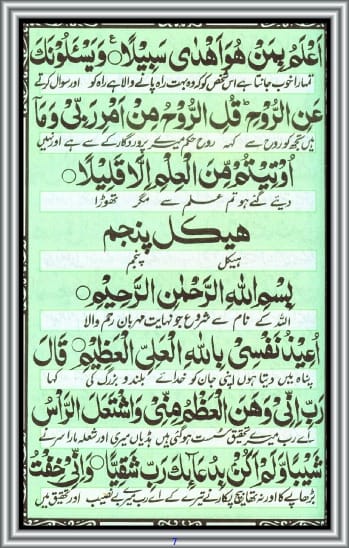 اَعْلَمُ بِمَنْ هُوَ اَهْدٰى سَبِيْلًا ۟ وَيَسْئَلُوْنَكَ
تمہارا خوب جانتا ہے اس شخص کو کہ وہ بہت راہ پانے والا ہے راہ کو اور سوال کرتے
عَنِ الرُّوْحِ ؕ قُلِ الرُّوْحُ مِنْ اَمْرِ رَبِّىْ وَمَآ
ہیں تجھ کو روح سے کہہ روح حکم میرے پروردگار کے سے ہے اور نہیں
اُوْتِيْتُمْ مِّنَ الْعِلْمِ اِلَّا قَلِيْلًا ۟
دیئے گئے ہو تم علم سے مگر تھوڑا
هيكل پنجم
ہیکل پنجم
بِسْمِ اللهِ الرَّحْمٰنِ الرَّحِيْمِ ۟
اللہ کے نام سے شروع جو نہایت مہربان رحم والا
اُعِيْذُ نَفْسِىْ بِاللهِ الْعَلِىِّ الْعَظِيْمِ ۟ قَالَ
پناہ میں دیتا ہوں اپنی جان کو خدائے بلند و بزرگ کی کہا
رَبِّ اِنِّىْ وَهَنَ الْعَظْمُ مِنِّىْ وَاشْتَعَلَ الرَّاْسُ
اے رب میرے تحقیق سست ہو گئی ہیں ہڈیاں میری اور شعلہ مارا سر نے
شَيْبًا وَّلَمْ اَكُنْ بِدُعَآئِكَ رَبِّ شَقِيًّا ۟ وَاِنِّىْ خِفْتُ
بڑھاپے کا اور نہ تھا بیچ پکارنے تیرے کے اے رب میرے بے نصیب اور تحقیق میں
7